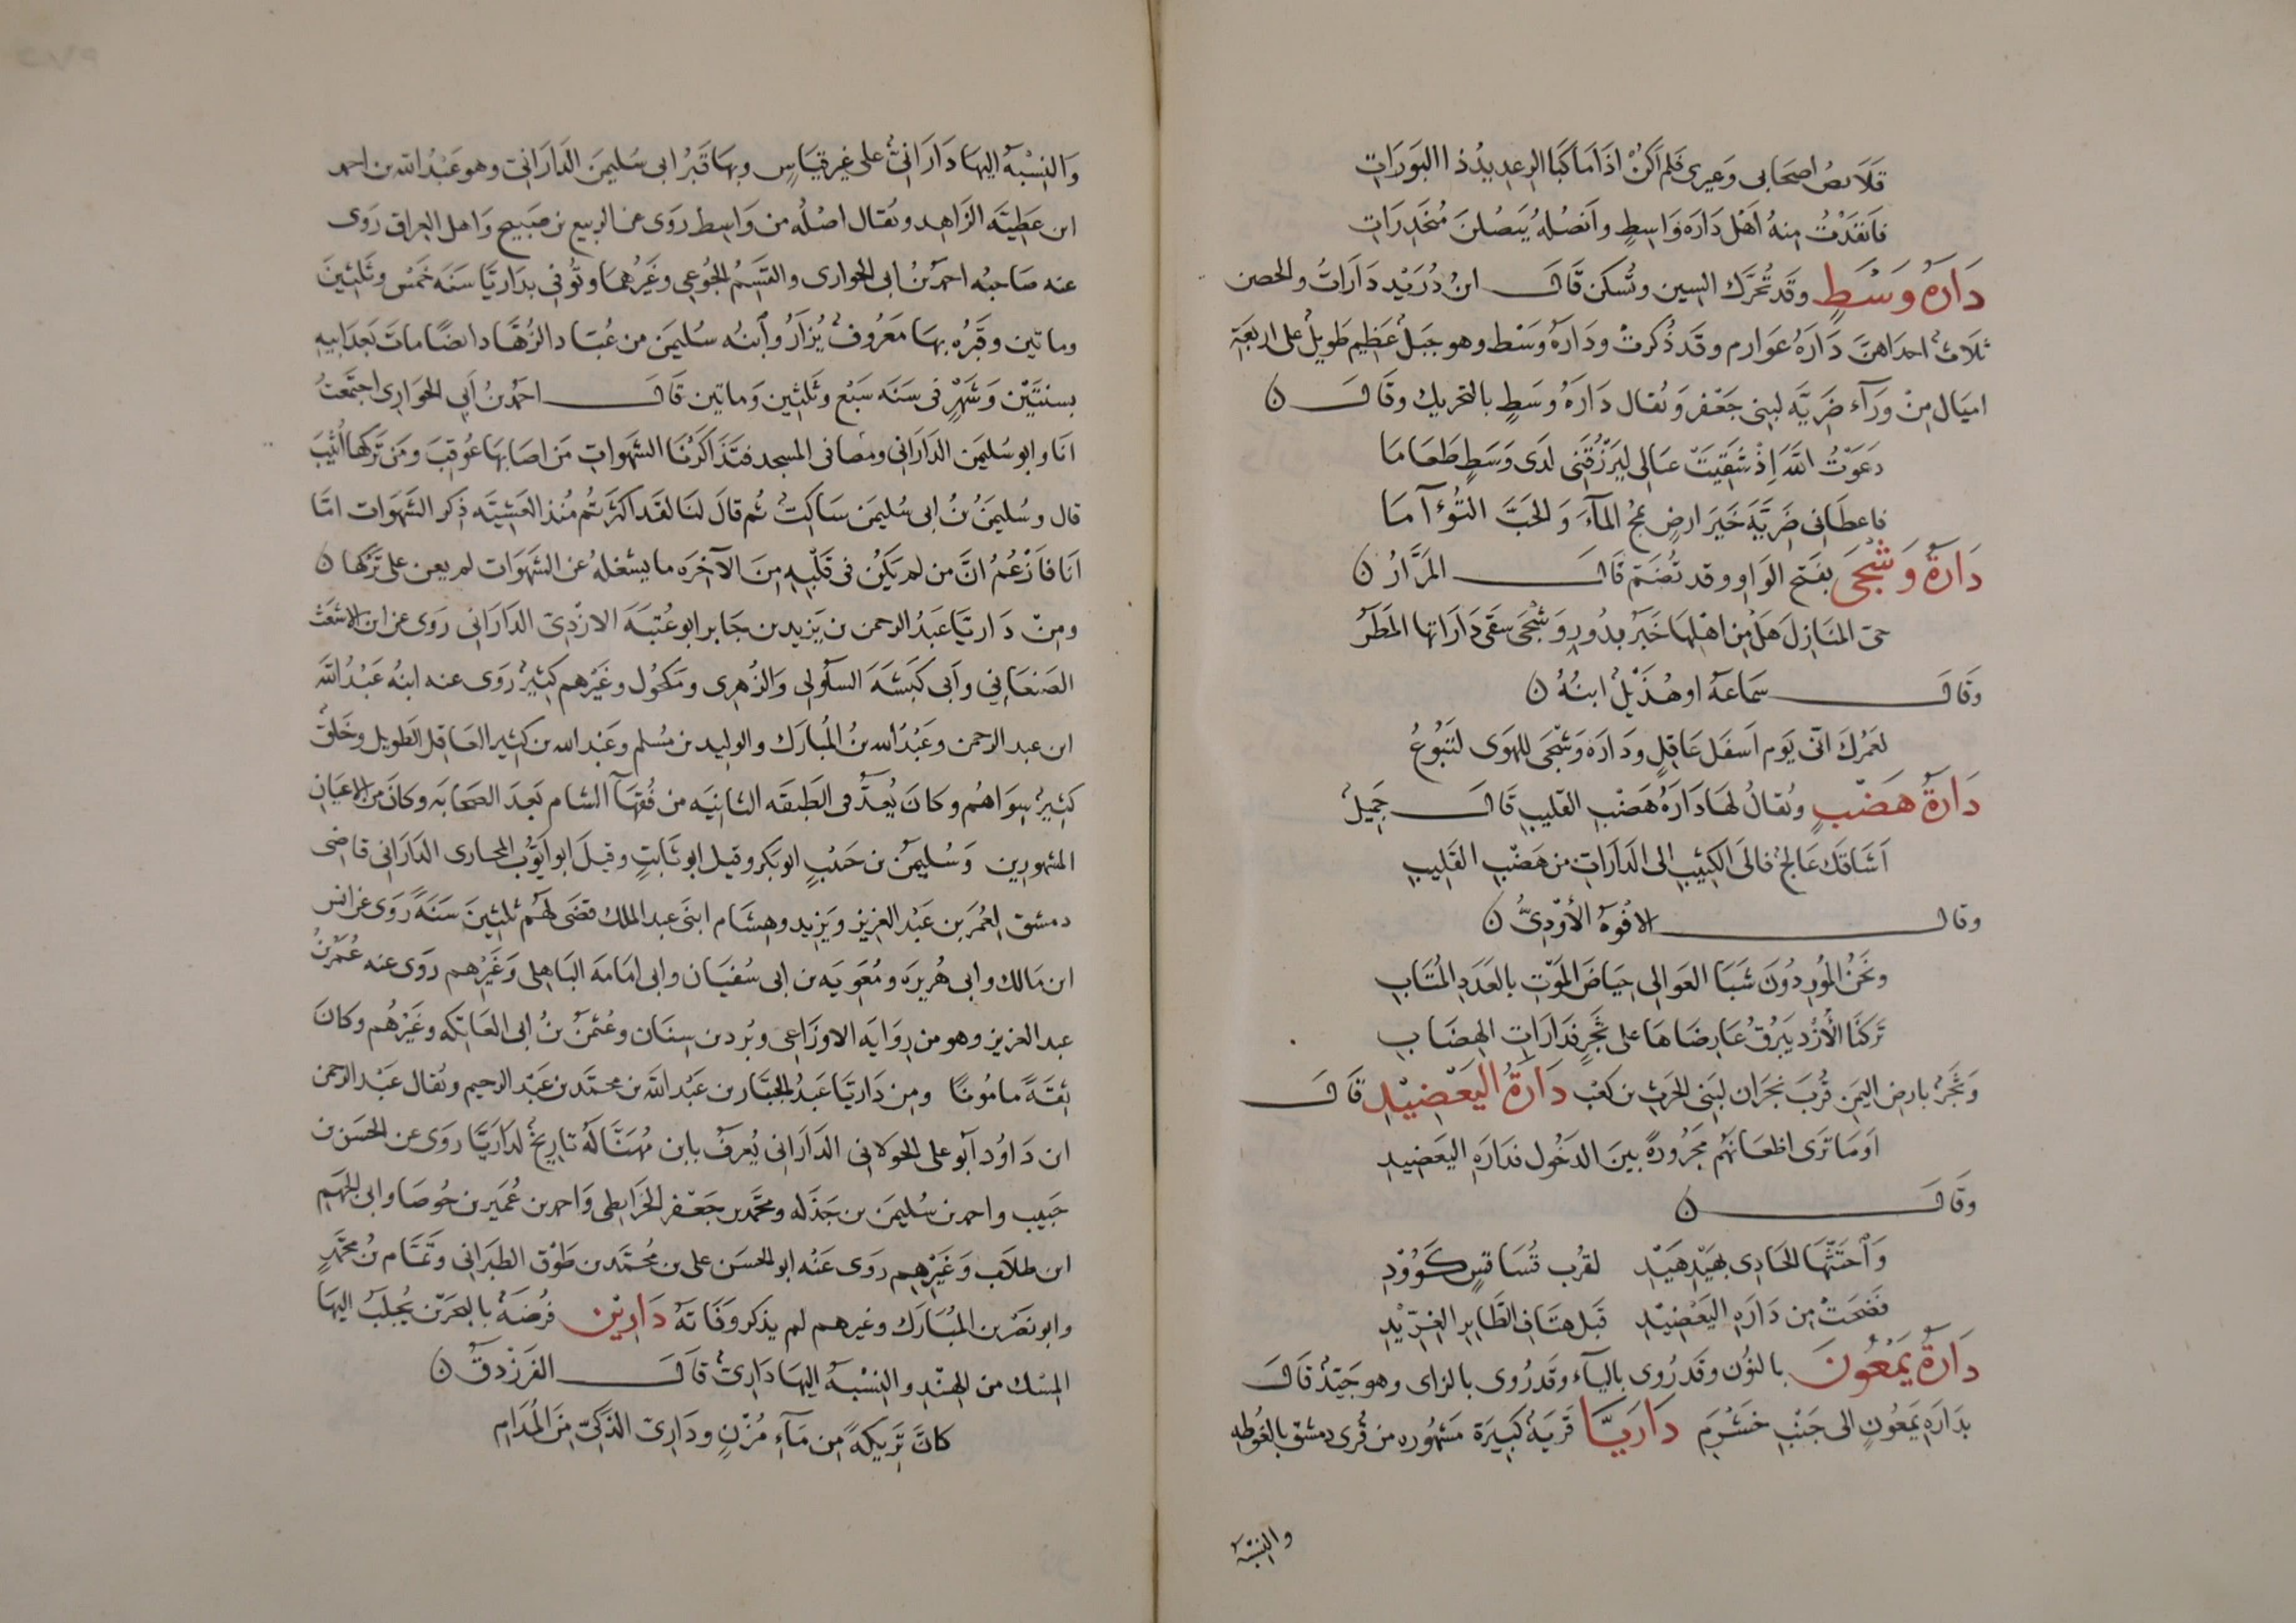 قَلَايصُ اصحَابى وَعيرى فَلم اَكنْ اذَا مَا كَبَا الرعديدُ ذا البَورَاتِ
فاَنقذتُ منهُ اَهْل دَارَه وَاسِطٍ واَنصُلُه يَبصُلنَ مُنحَدِرَاتِ
دَارَهُ وَسَطٍ وقَد تُحَرَّك السين وتُسكن قَالَ ابنُ دُرَيْد دَارَاتُ والحصن
ثلاثٌ احدَاهنَّ دَارَهُ عَوَارم وقَد ذُكرتْ ودَارَةُ وَسْط وهو جبَلٌ عَظيم طَويلٌ على اربَعَةِ
اميَال مِنْ وَرَآء ضَرِيَّه لبنى جَعْفر وَيُقال دَارَهُ وسَطٍ بالتحريك وقَالَ ن
دَعَوْتُ اللّهَ اِذْ شَقِيَتْ عيَالى ليَرْزُقَنى لدَى وَسَطٍ طَعَامَا
فاعطَانى ضَرِيَّةَ خَيرَ ارضٍ تمجُّ المآءَ وَالحَبَّ التُؤَآمَا
دَارَةُ وَشْجَى بفَتح الوَاو وقد تُضَم قَالَ المرَّارُ ن
حىّ المنَازِلَ هَل مِن اهْلهَا خَبَرُ بدُورِ وَشْجَى سقَى دَارَاتها المَطَرُ
وقَالَ سَماعَهُ او هُذَيْلٌ ابنُهُ ن
لعَمرُكَ انّى يَوم اَسفَل عَاقِلٍ ودَارَه وَشْجَى للهَوَى لتَبُوعُ
دَارَةُ هَضْبٍ ويُقالُ لهَا دَارَهُ هَضْبِ القليبِ قَالَ جَميلُ
اَشَاقكَ عَالجُ فالى الكثيبِ الى الدَارَاتِ من هَضْبِ القَليبِ
وقالَ الافْوَهُ الأَوْدِىُّ ن
ونَحنُ المُورِدُونَ شَبَا العَوالى حِيَاضَ المَوْتِ بالعَدَدِ المُثَابِ
تَرَكنَا الأَزْدَ يَبرُقُ عَارِضَاهَا على ثَجْرٍ فدَارَاتِ الهضَابِ
وَثَجْرُ بارض اليمَن قُربَ نجرَان لبَنى الحَرثِ بن كَعْب دَارَةُ اليَعْضيْدِ قَالَ
اَوَمَا تَرَى اظعَانَهُم مَجرُورَةً بَينَ الدَخُول فدَارَهِ اليَعضيدِ
وقَالَ ن
وَاَحتَثَّهَا الحَادِى بهَيْدٍ هَيْدِ لقُرب قُسَاقسٍ كَؤُودِ
فَصَبَحَتْ مِن دَارَهِ اليَعْضيْدِ قَبلَ هتَافِ الطَايرِ الغِرِّيْدِ
دَارَةُ يَمْعُونَ بالنوُن وقَد رُوى بالياَء وقَد رُوى بالزاى وهو جَيّدٌ قَالَ
بدَارَه يَمعُونٍ الى جَنْبِ خَشْرَمِ دَارَيَّا قَريَهُ كَبيرَة مَشهُوره من قُرى دمشق بالغوطه
والنسْبَهُ
وَالنِسْبهُ اليهَا دَارَانىٌّ على غير قيَاسٍ وبهَا قَبْرُ ابى سُليمَن الدَارَانىّ وهو عَبْدُ اللّه بن احمد
ابن عَطِيَّه الزَاهِد ويُقال اصْلُه من وَاسِط رَوَى عن الربيع بن صَبيح وَاهل العراق رَوَى
عنه صَاحبُه احمَدُ بن ابى الحوارى والقَسِمُ الجُوعِى وغَيرُهُما وتُوُفّى بدَاريَّا سَنَه خَمْس وثَلثينَ
وماتين وقَبْرُه بهَا مَعْرُوفٌ يُزَارُ واَبنُه سُليمَن من عُبّاد الزُهَّاد ايضًا ماتَ بَعدَ ابيهِ
بسنتَيْن وَشَهْرٍ فى سَنَه سَبْع وثَلثين وَماتين قَالَ احمَدُ بنُ اَبي الحَوَارِى اجتَمَعْتُ
انَا وابو سُليمَن الدَارَانى ومضَا فى المسجد فتذَاكَرْنَا الشهَواتِ مَن اصَابهَا عُوقِبَ ومَن تَرَكهَا اُثيبَ
قال وسُليمَنُ بنُ ابى سُليمَن سَاكتٌ ثُم قالَ لنَا لقَد اكثَرتُم مُنذ العَشيَّه ذِكر الشَهوَات امَّا
انَا فاَزْعُمُ انَّ مَن لم يَكُن فى قَلْبه مِنَ الآخرَه ما يشغلهُ عن الشهَوَات لم يعن على تَرْكهَا ن
ومنْ دَاريَّا عَبدُ الرحمن بن يَزيد بن جَابر ابو عُتبَهَ الازْدىّ الدَارَانى رَوَى عن ابى الاشعَث
الصَنعَاني وابى كَبشَهَ السلُولى وَالزُهرى ومَكحُول وغَيرُهم كَثيرٌ رَوى عنه ابنُه عَبْدُ اللّه
ابن عبد الرحمن وعَبْدُ اللّه بنُ المُبارَك والوليد بن مُسلم وعَبد اللّه بن كَثير العَاقِل الطَويل وخَلقٌ
كَثيرٌ سِوَاهُم وكَانَ يُعَدُّ فى الطَبقَه الثانيَه من فُقهآ الشام بَعدَ الصَحابَه وكانَ من الاعيَانِ
المشهورين وَسُليمَن بن حَبيْبٍ ابو بَكر وقيل ابو ثابتٍ وقيلَ ابو اَيّوبَ المحارى الدَارَانى قاضى
دمشق لعُمَرَ بن عَبْد العزيز وَيَزيد وهِشَام ابنَى عبد الملك قضَى لهُم ثَلثينَ سَنَةً رَوى عن انس
ابن مَالك وابى هُريرَه ومُعَويَه بن ابى سُفيَان وابى امَامَه البَاهلى وَغَيرْهم رَوَى عنه عُمَرُ بنُ
عبد العزيز وهو من رِوَايَه الاوزَاعى وبُرد بن سِنَان وعُثمَنُ بنُ ابى العَاتكَه وغَيْرُهُم وكَانَ
ثقَةً مامُونًا ومِن دَاريَّا عَبدُ الجبَّار بن عَبْد اللّه بن محمَّد بن عَبْد الرحيم ويُقال عَبْد الرحمن
ابن دَاوُد اَبو على الخَولانى الدَارَانى يُعرَفُ بابن مُهَنَّا لَهُ تاريخُ لدَاريَّا رَوَى عن الحَسَن بن
حَبيب واحمد بن سُليمَن بن جَذْلَه ومحَمَّد بن جَعْفر الخَرَايطى وَاحمد بن عُمَير بن جَوصَا وابى الجَهم
ابن طَلاب وَغَيْرِهِم رَوى عَنْه ابو الحَسَن على بن مُحمَّد بن طَوْق الطبَرَانى وتَمَّام بنُ محَمَّدٍ
وابو نَصْر بن المُبَارَك وغيرهم لم يذكر وَفَاتَهُ دَارِيْن فُرضَهُ بالبحَرَيْن يُجلَبُ اليهَا
المسْك من الهنْدِ والنسْبَهُ اليهَا دَارِىٌّ قَالَ الفَرَزْدقُ ن
كانَّ تَريكةً مِن مَآءِ مُزْنٍ ودَارِىّ الذَكىّ مِنَ المُدَامِ